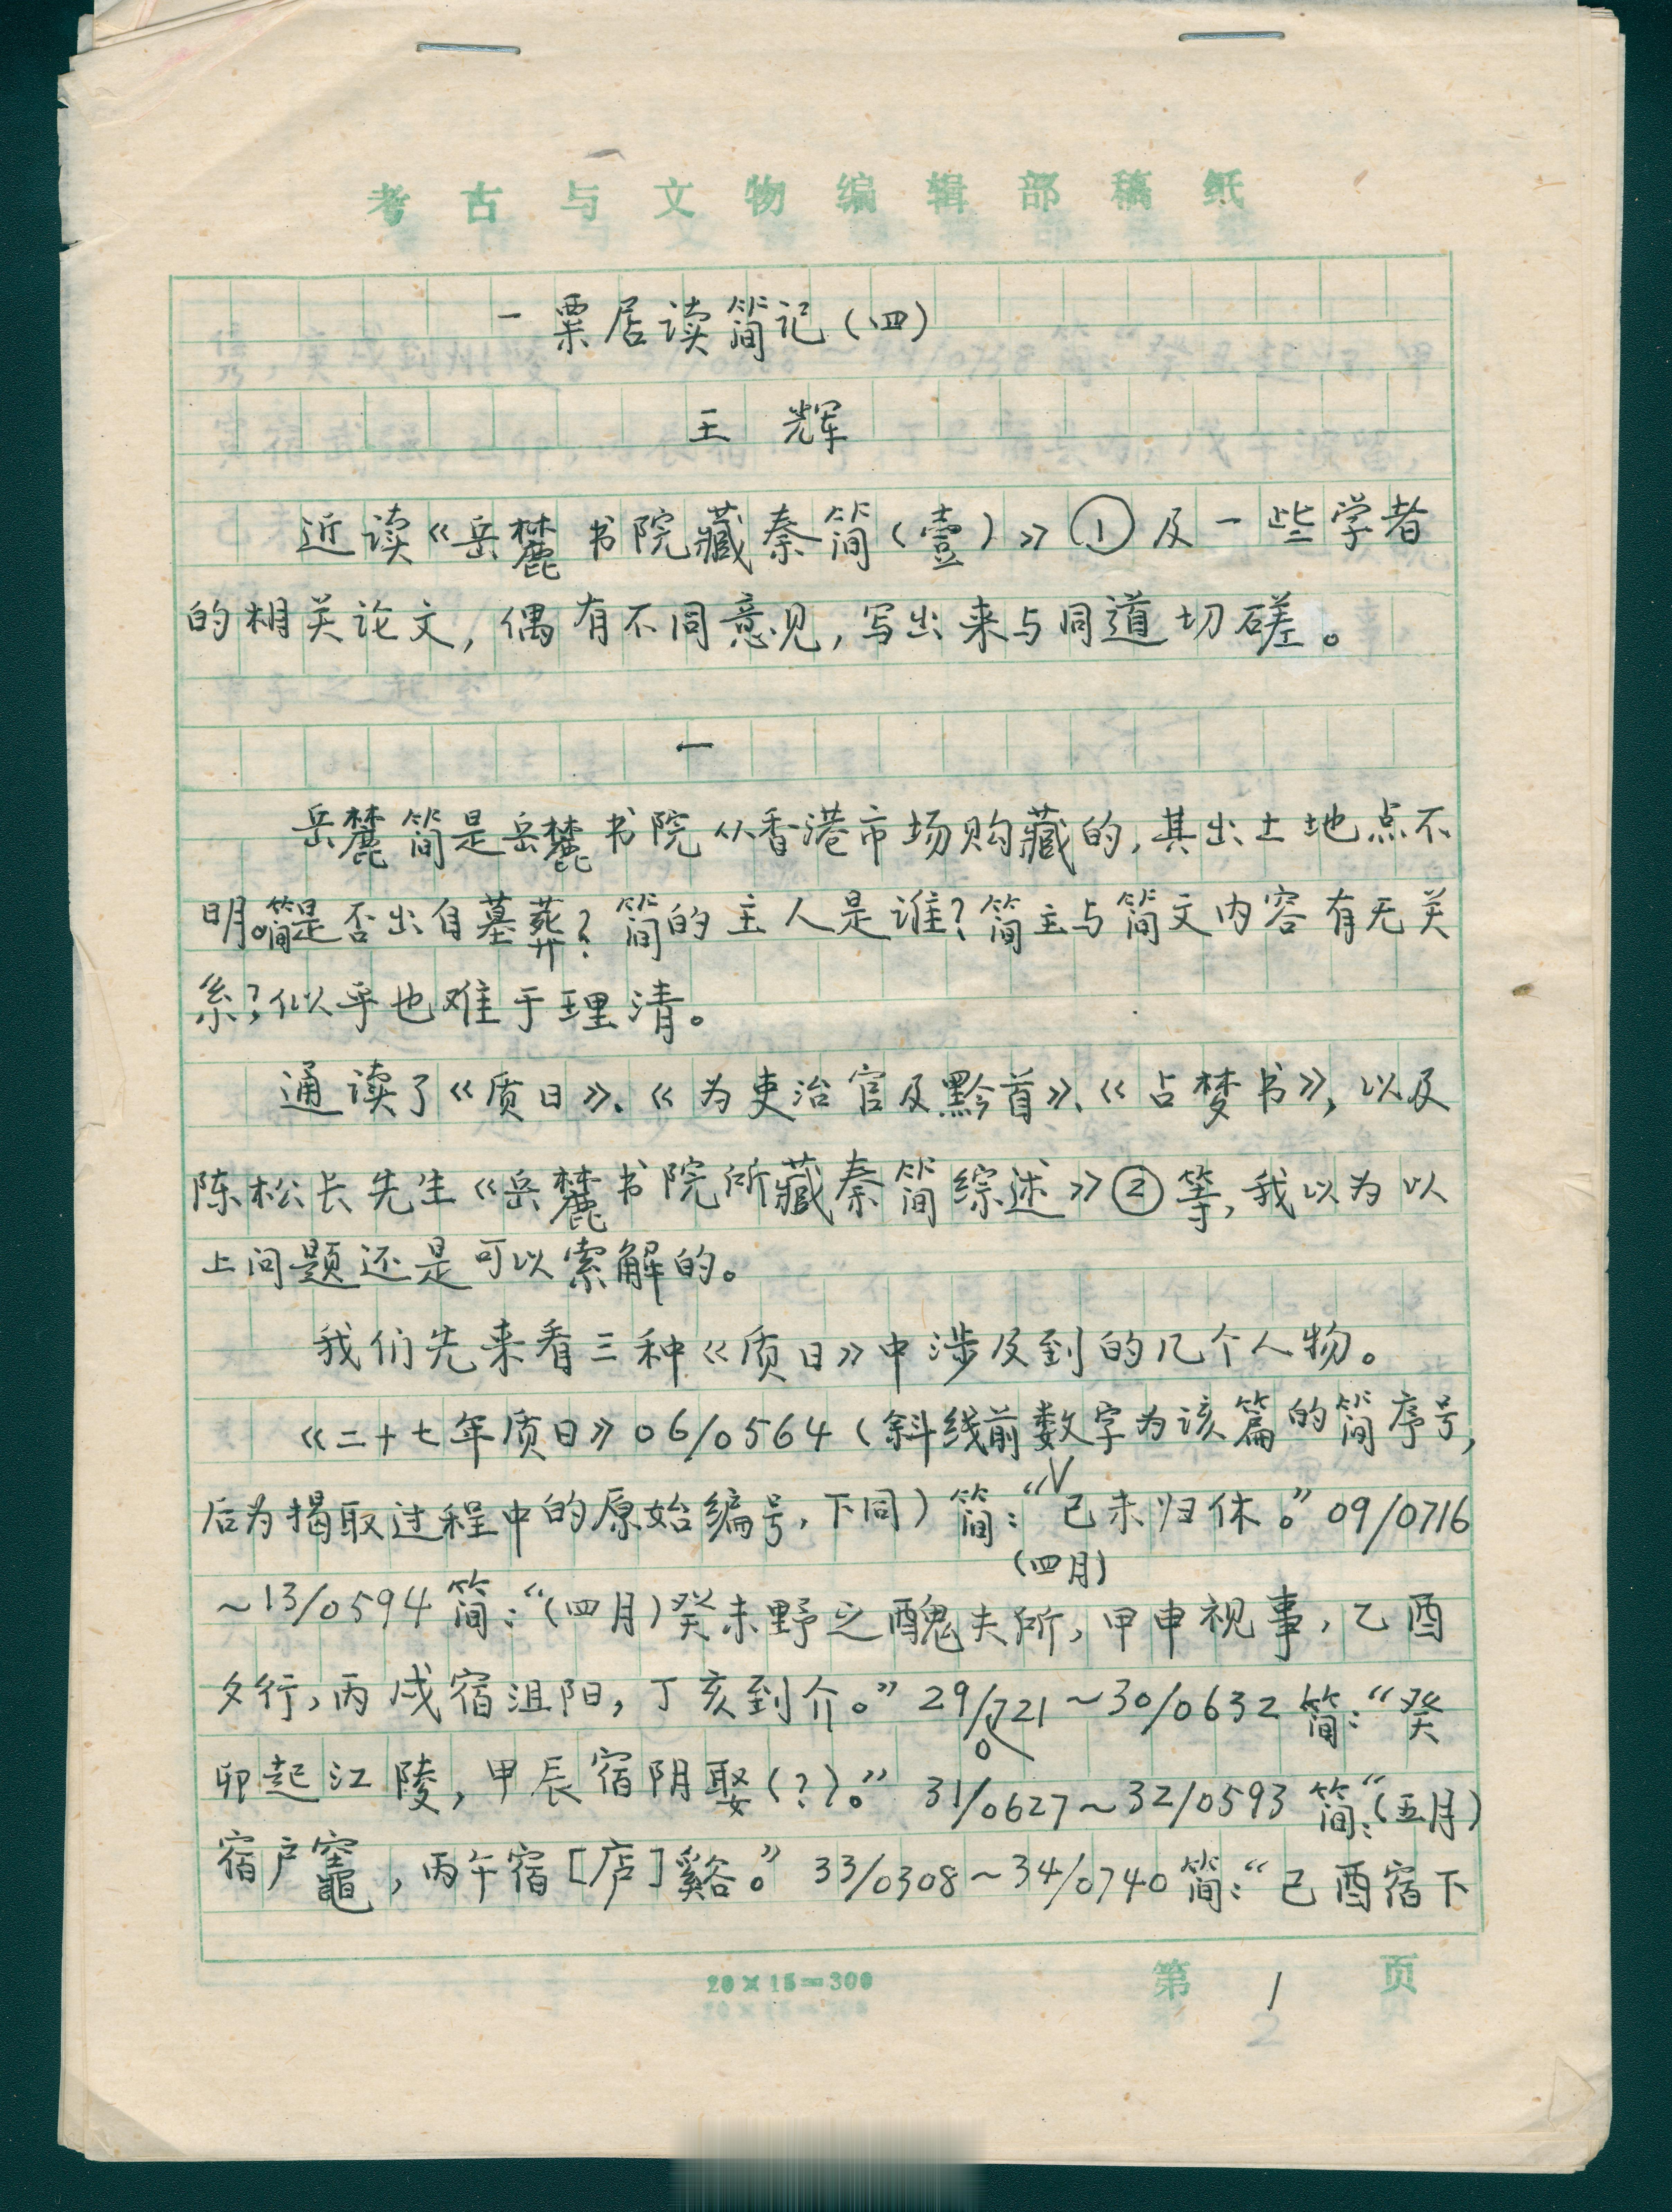 考古与文物编辑部稿纸
一粟居读简记(四)
王 辉
近读《岳麓书院藏秦简(壹)》①及一些学者
的相关论文,偶有不同意见,写出来与同道切磋。
一
岳麓简是岳麓书院从香港市场购藏的,其出土地点不
明。简是否出自墓葬?简的主人是谁?简主与简文内容有无关
系?似乎也难于理清。
通读了《质日》、《为吏治官及黔首》、《占梦书》,以及
陈松长先生《岳麓书院所藏秦简综述》②等,我以为以
上问题还是可以索解的。
我们先来看三种《质日》中涉及到的几个人物。
《二十七年质日》06/0564(斜线前数字为该篇的简序号,
后为揭取过程中的原始编号,下同)简:“己未归休。”09/0716
(四月)
~13/0594简:“(四月)癸未野之醜夫所,甲申视事,乙酉
夕行,丙戌宿沮阳,丁亥到介。”29/0721~30/0632简:“癸
卯起江陵,甲辰宿阴娶(?)。”31/0627~32/0593简:“(五月)
宿户竈,丙午宿[庐]谿。”33/0308~34/0740简:“己酉宿下
20×15=300
第 1 页
2